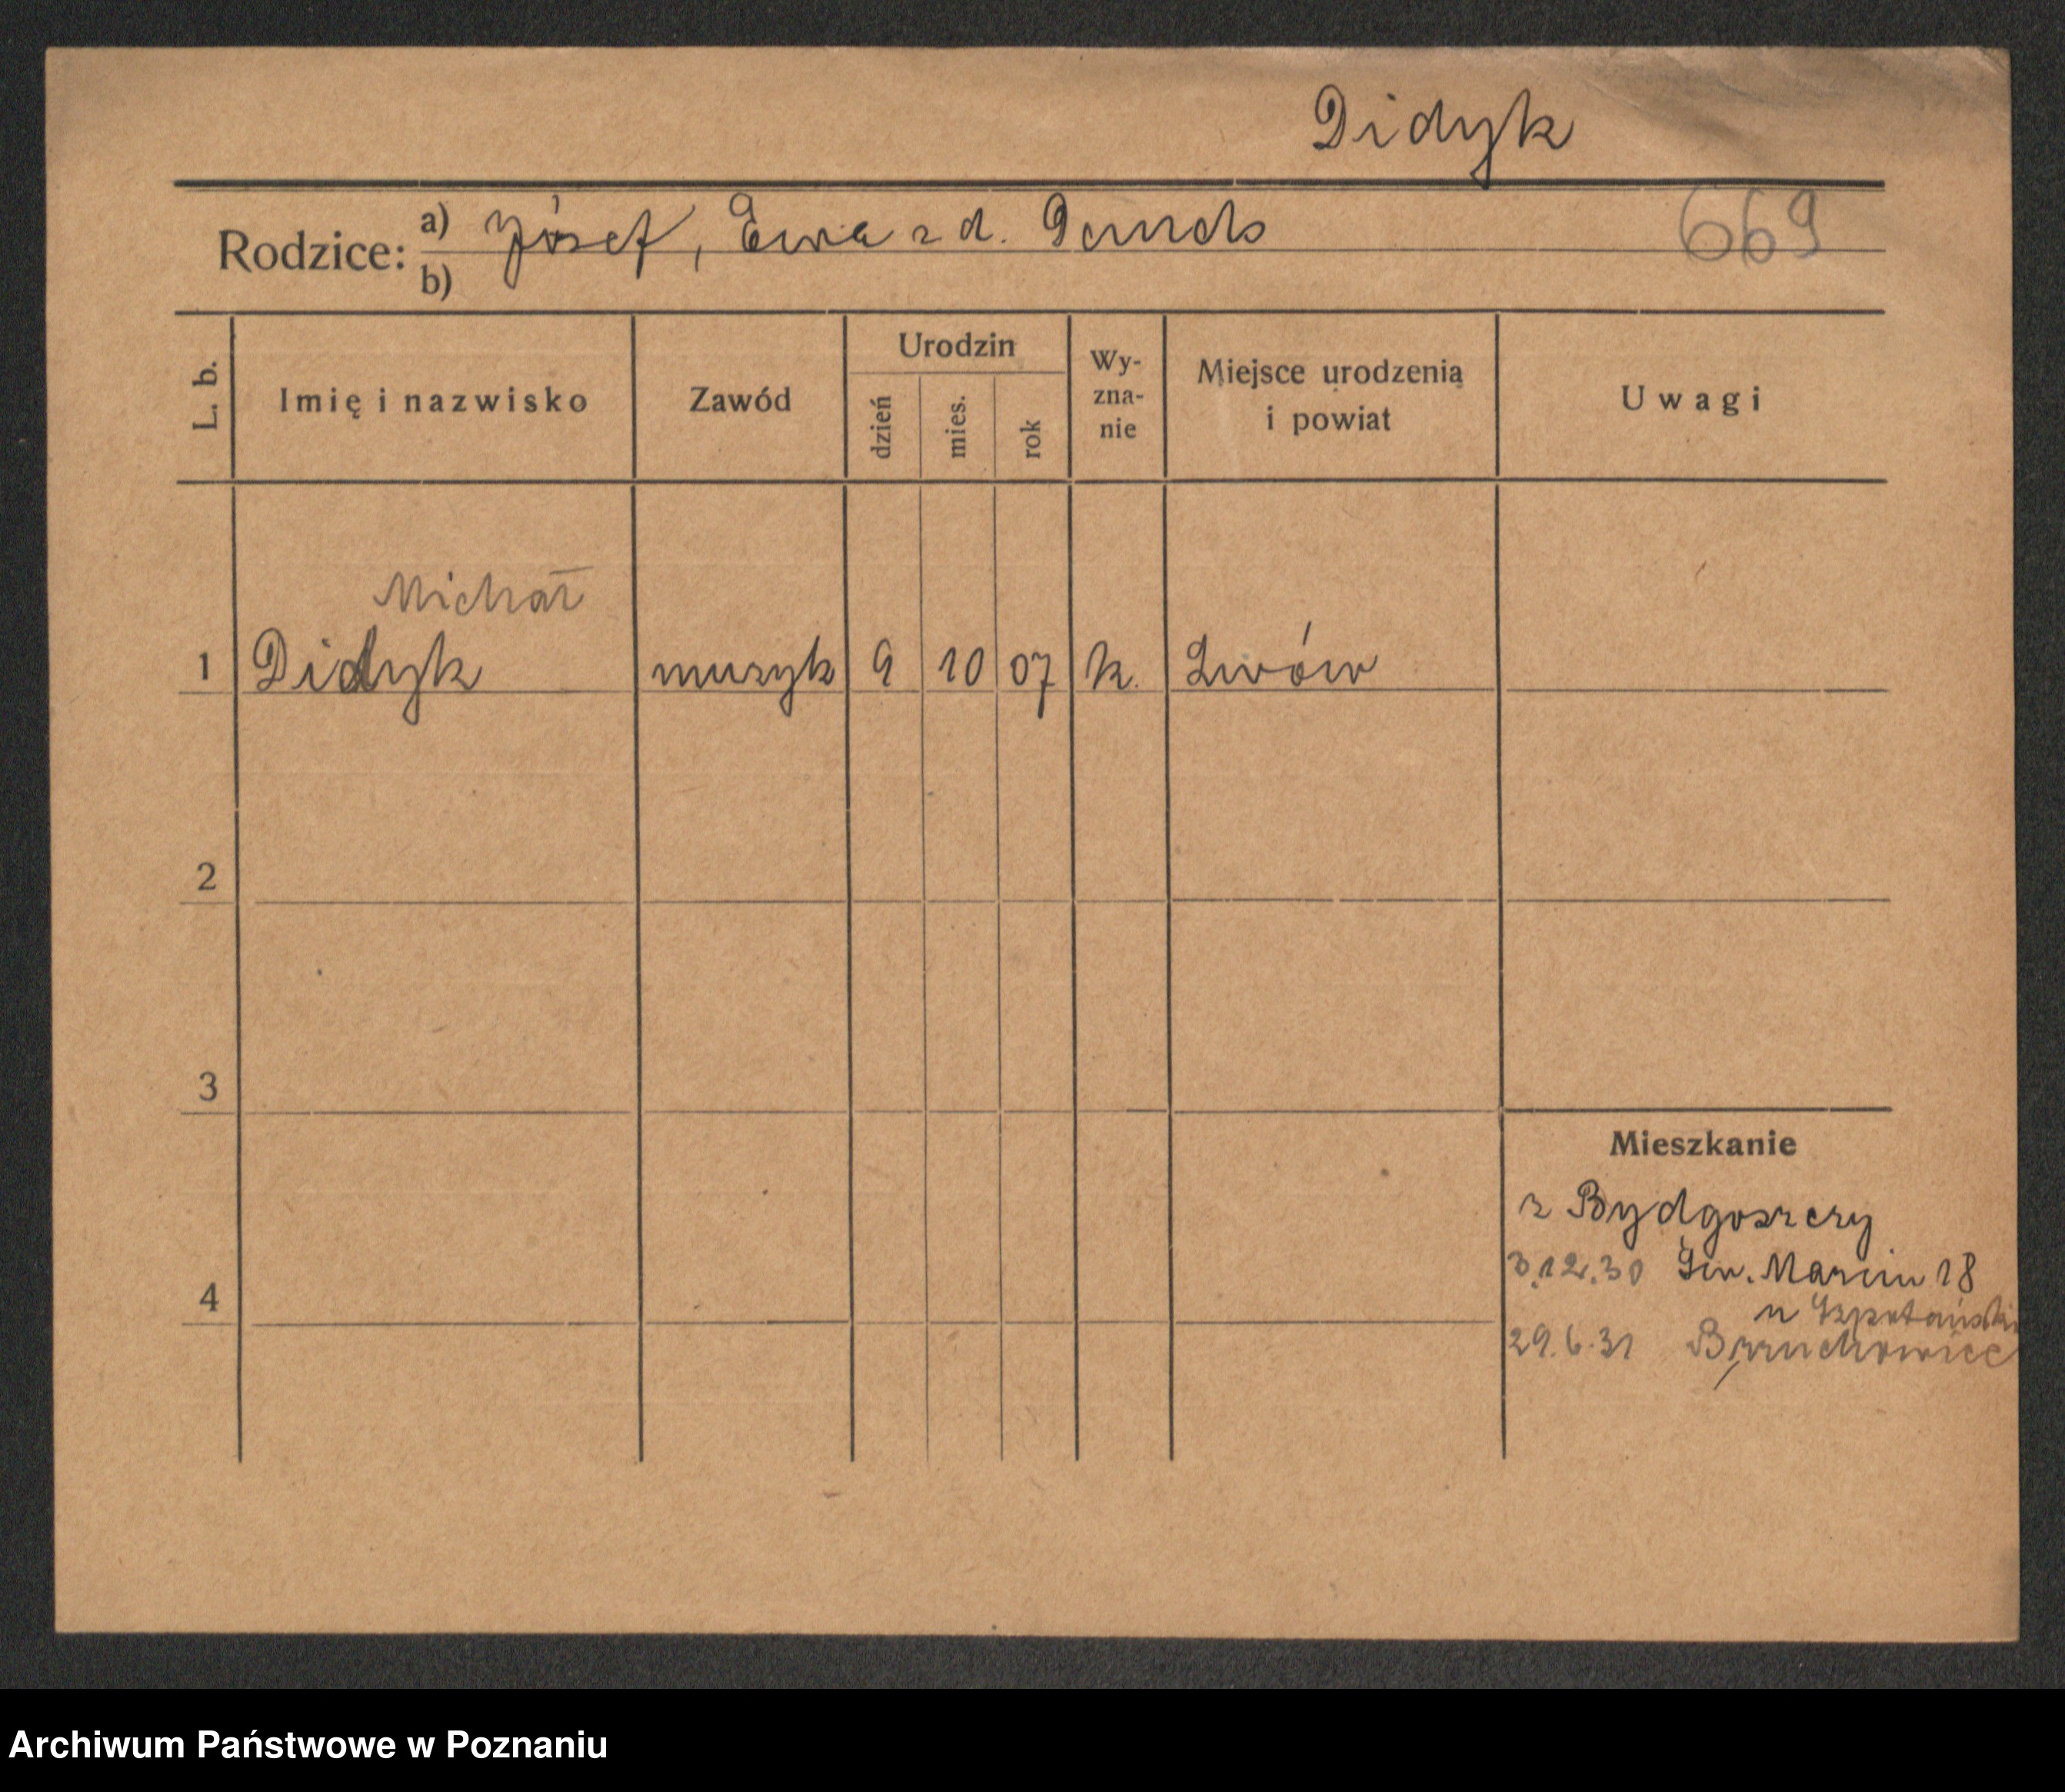 Didyk
669
Rodzice: a) Józef, Ewa z d.
b)
L. b. Imię i nazwisko Zawód Urodzin dzień mies. rok Wy-zna-nie Miejsce urodzenia i powiat Uwagi
Michał
1 Didyk muzyk 9 10 07 k. Lwów
2
3
Mieszkanie
z Bydgoszczy
3.12.30 Św. Marcin 18
4
29.6.31 Brzuchowice
Archiwum Państwowe w Poznaniu